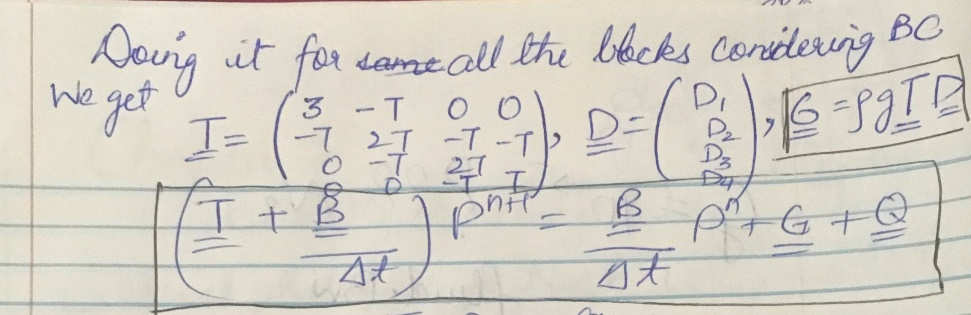 Doing it for same all the blocks considering BC
We get T = ( 3 -T 0 0 ; -T 2T -T -T ; 0 -T 2T ; 0 0 -T T ), D = ( D1 D2 D3 D4 ), G = ρg T D
( T + B/Δt ) P^{n+1} = B/Δt P^n + G + Q